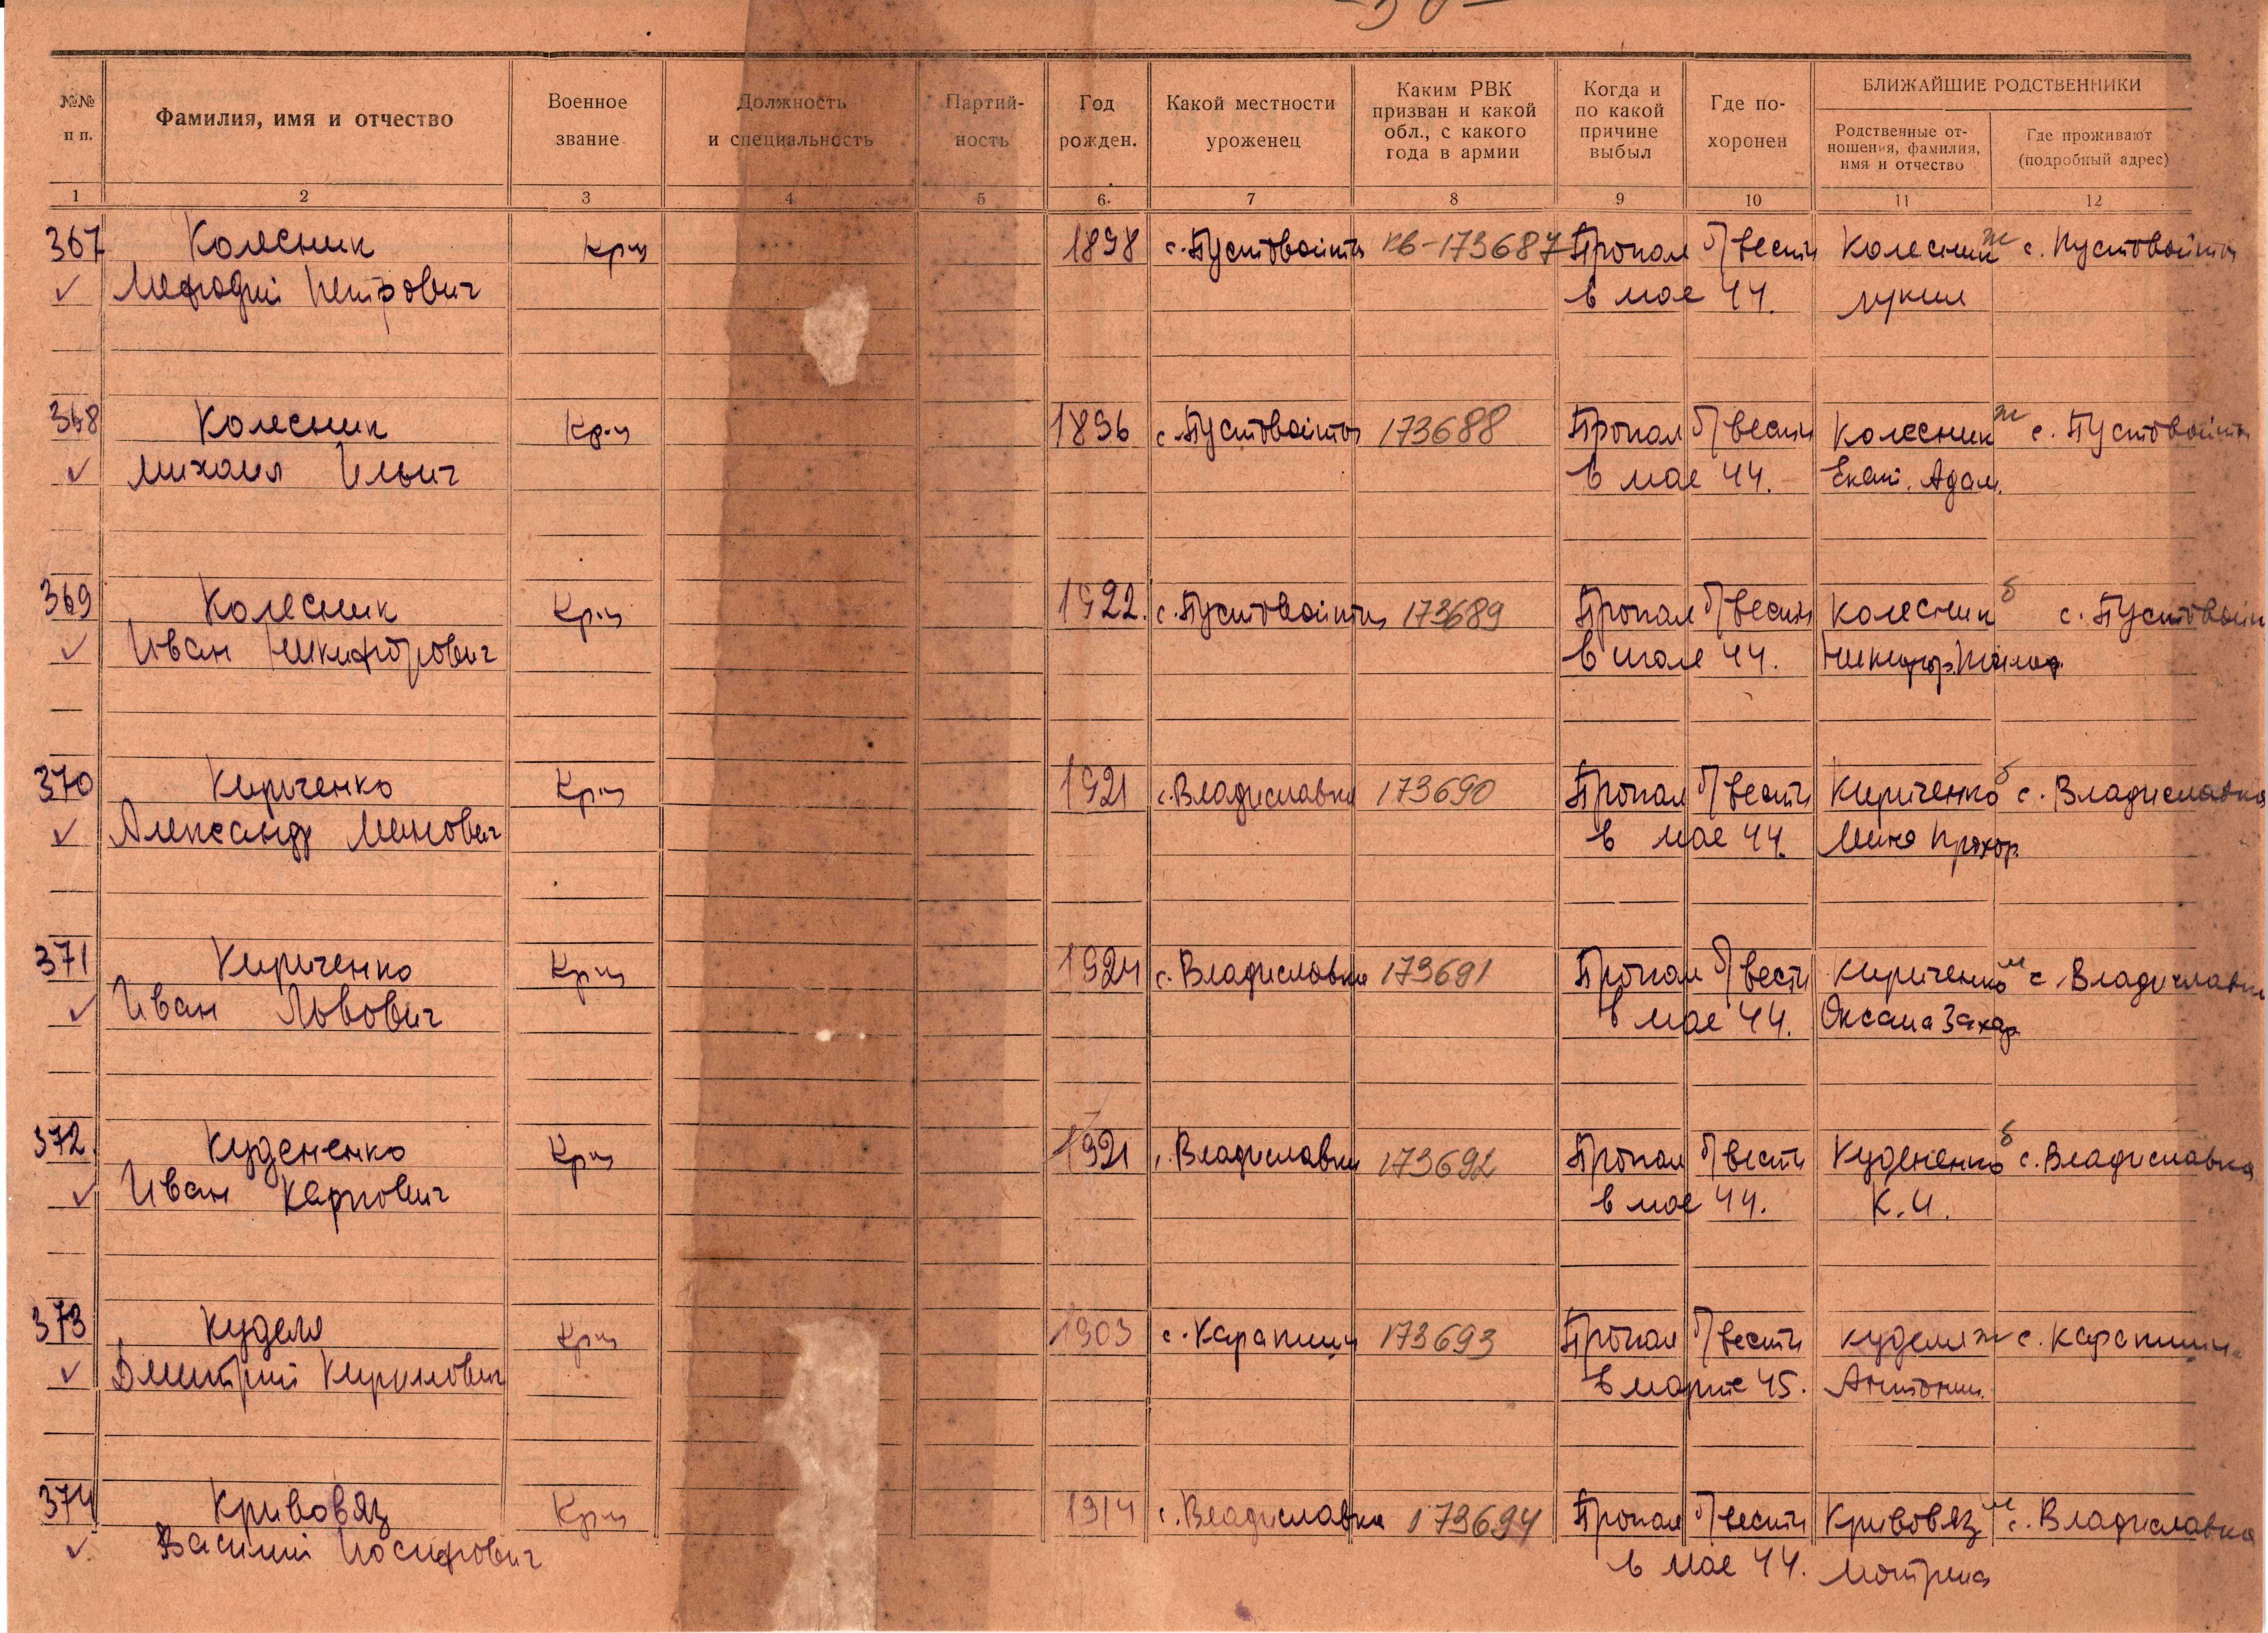 №№
п п.
Фамилия, имя и отчество
Военное
звание
Должность
и специальность
Партий-
ность
Год
рожден.
Какой местности
уроженец
Каким РВК
призван и какой
обл., с какого
года в армии
Когда и
по какой
причине
выбыл
Где по-
хоронен
БЛИЖАЙШИЕ РОДСТВЕННИКИ
Родственные от-
ношения, фамилия,
имя и отчество
Где проживают
(подробный адрес)
1 2 3 4 5 6. 7 8 9 10 11 12
367 Колесник Кр-ц 1898 с. Пустовойты кв-173687 Пропал б/вести Колесник ж с. Пустовойты
Мефодий Петрович в мае 44.
368 Колесник Кр-ц 1896 с. Пустовойты 173688 Пропал б/вести Колесник ж с. Пустовойты
Михаил Ильич в мае 44. Екат. Адам.
369 Колесник Кр-ц 1922. с. Пустовойты 173689 Пропал б/вести Колесник б с. Пустовойт
Иван Никифорович в 44. Никифор.
370 Кириченко Кр-ц 1921 с. Владиславка 173690 Пропал б/вести Кириченко б с. Владиславка
Александр Минович в мае 44. Мина Прохор.
371 Кириченко Кр-ц 1924 с. Владиславка 173691 Пропал б/вести Кириченко м с. Владиславка
Иван Львович в мае 44. Оксана Захар.
372. Кудененко Кр-ц 1921 с. Владиславка 173692 Пропал б/вести Кудененко б с. Владиславка
Иван Карпович в мае 44. К. И.
373 Куделя Кр-ц 1903 с. Карапиши 173693 Пропал б/вести Куделя ж с. Карапиши
Дмитрий Кирилович в марте 45. Антонин.
374 Кривовяз Кр-ц 1914 с. Владиславка 173694 Пропал б/вести Кривовяз м с. Владиславка
Василий Иосифович в мае 44. Мотрена